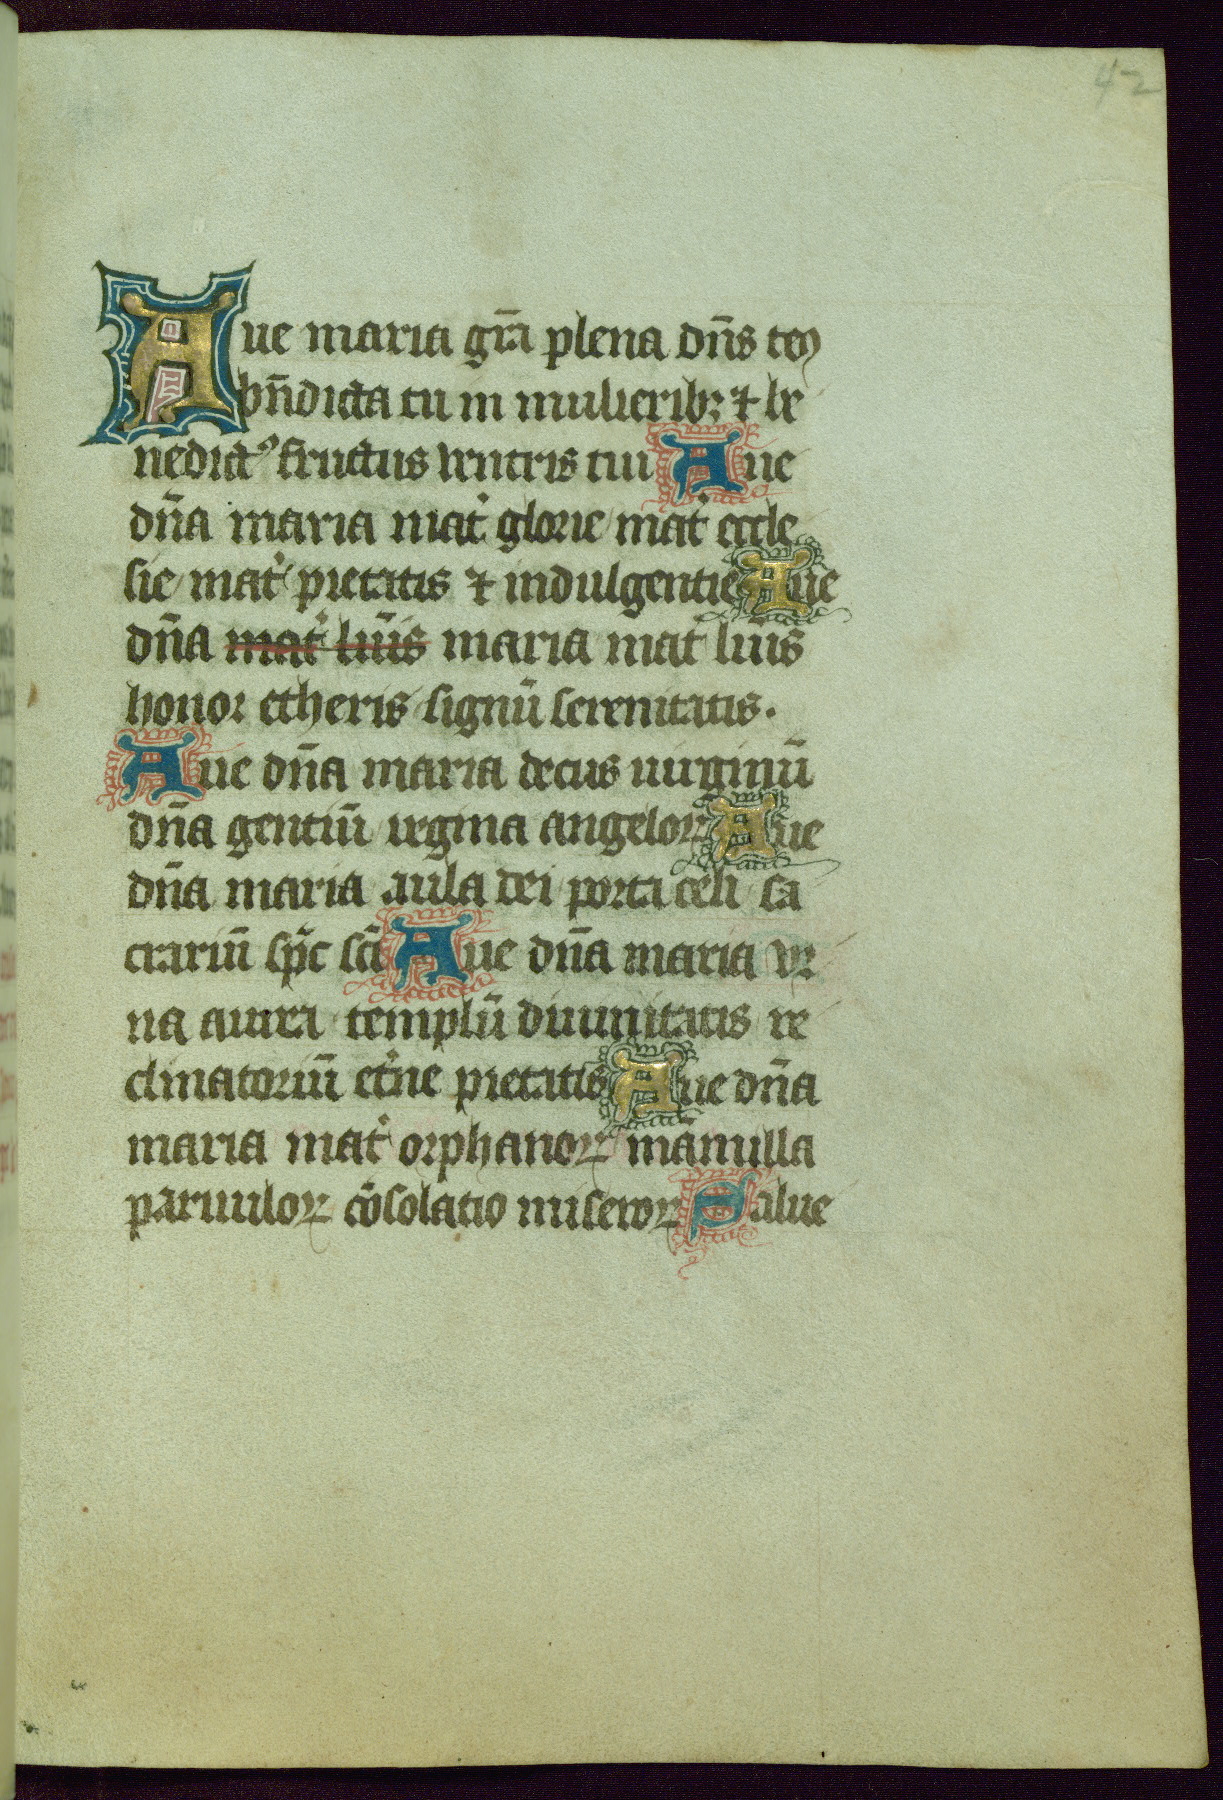 42
Aue maria gr̄a plena dn̄s tecū
bn̄dicta tu in mulieribꝫ ⁊ be
nedictꝰ fructus uentris tui Aue
dn̄a maria mat̉ glorie mat̉ eccle
sie mat̉ pietatis ⁊ indulgentie Aue
dn̄a mat̉ lūīs maria mat̉ lūīs
honor etheris signū serenitatis.
Aue dn̄a maria decus uirginū
dn̄a gentiū regina angeloꝝ Aue
dn̄a maria aula dei porta celi sa
crariū sp̄c sc̄i Aue dn̄a maria vr
na aurea templū diuinitatis re
clinatoriū et̉ne pietatis Aue dn̄a
maria mat̉ orphanoꝝ māmilla
paruuloꝝ cōsolatio miseroꝝ Salue